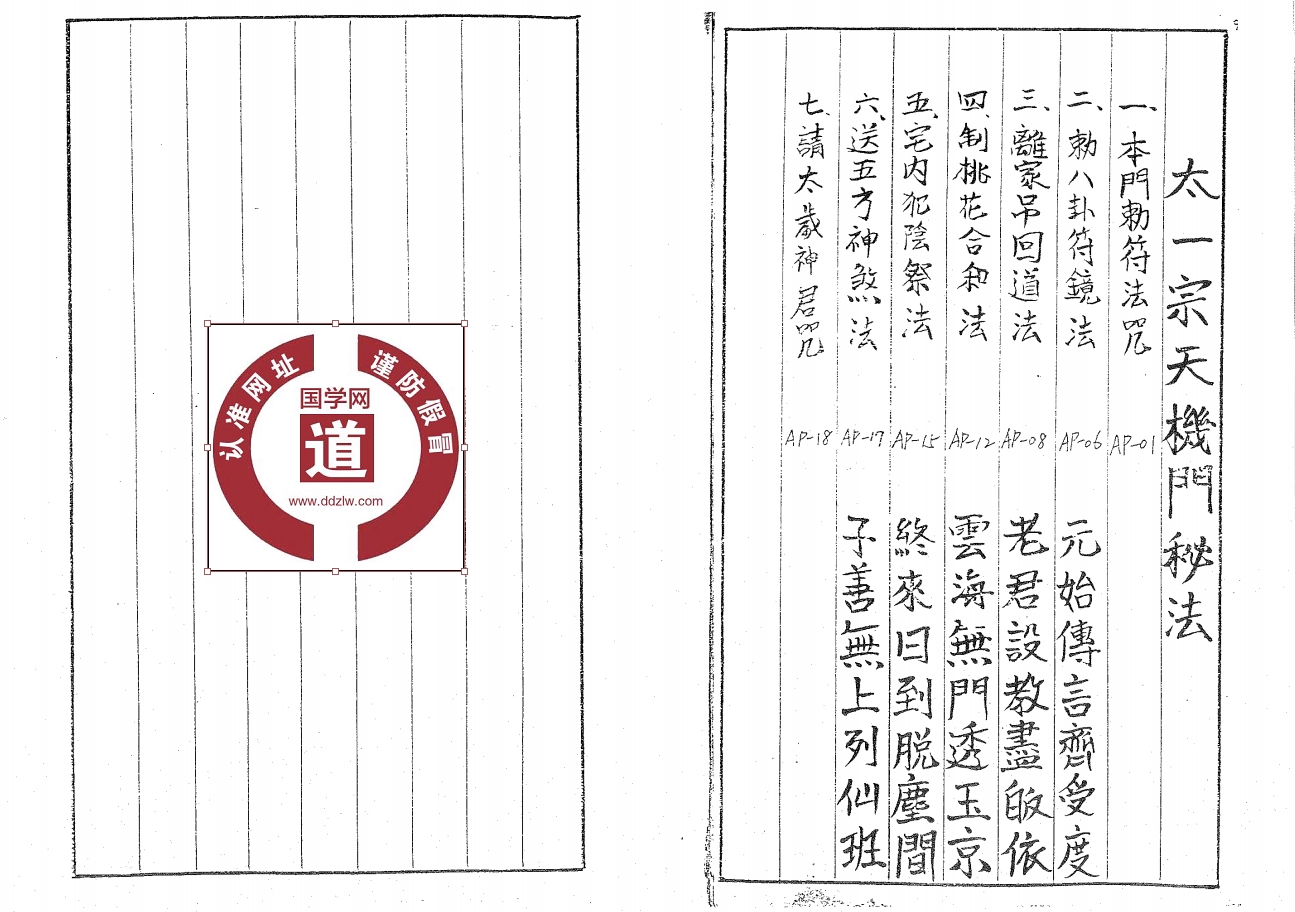 太一宗天機門秘法
一、本門勅符法咒 AP-01
二、勅八卦符鏡法 AP-06
三、離家吊回道法 AP-08
四、制桃花合和法 AP-12
五、宅内犯陰祭法 AP-15
六、送五方神煞法 AP-17
七、請太歲神君咒 AP-18
元始傳言齊受度
老君設教盡皈依
雲海無門透玉京
終來日到脱塵間
子善無上列仙班
认准网址
谨防假冒
国学网
道
www.ddzlw.com